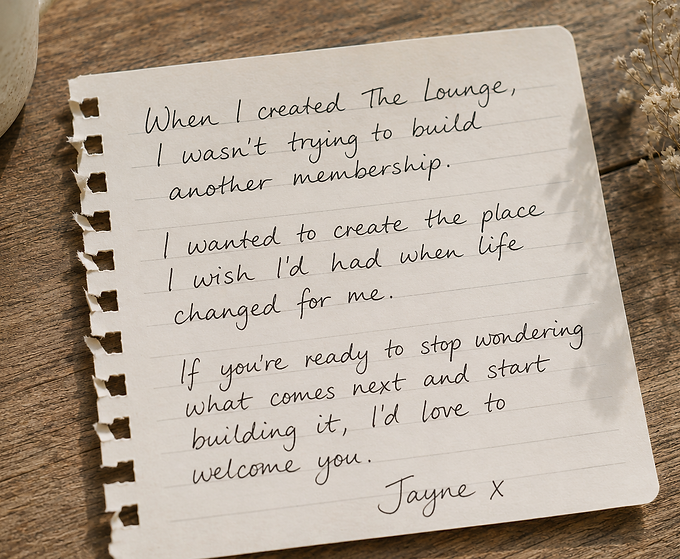 When I created The Lounge,
I wasn't trying to build
another membership.
I wanted to create the place
I wish I'd had when life
changed for me.
If you're ready to stop wondering
what comes next and start
building it, I'd love to
welcome you.
Jayne x